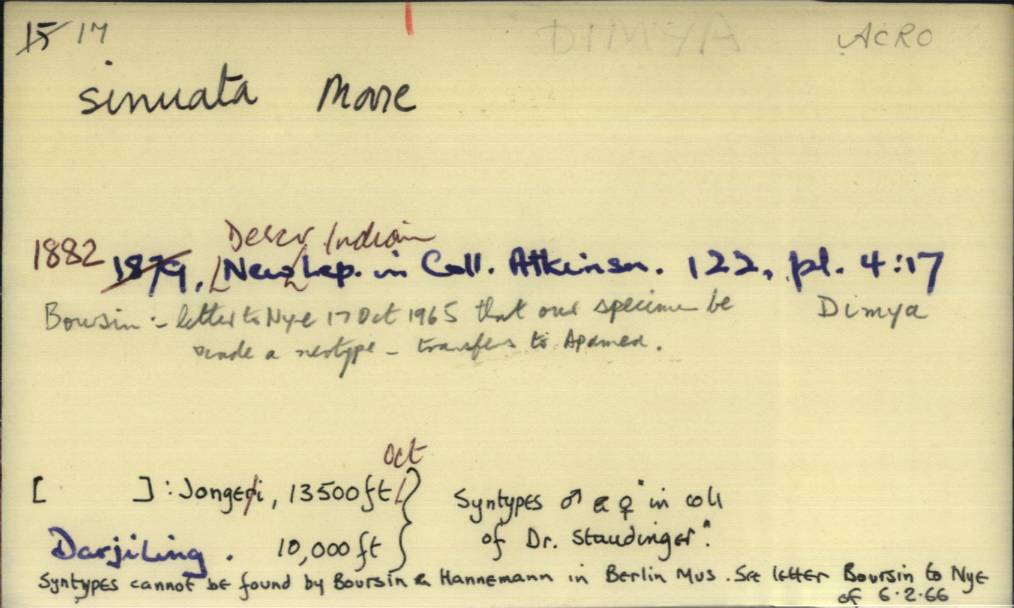 15 17 DIMYA ACRO
sinuata Moore
Descr Indian
1882 1879, New Lep. in Coll. Atkinson. 122, pl. 4:17
Boursin :- letter to Nye 17 Oct 1965 that our specimen be Dimya
made a neotype - transfers to Apamea.
Oct
[ ] : Jongedi, 13500ft
Syntypes ♂ & ♀ "in coll
Darjiling. 10,000 ft
of Dr. Staudinger".
Syntypes cannot be found by Boursin & Hannemann in Berlin Mus. See letter Boursin to Nye
of 6.2.66